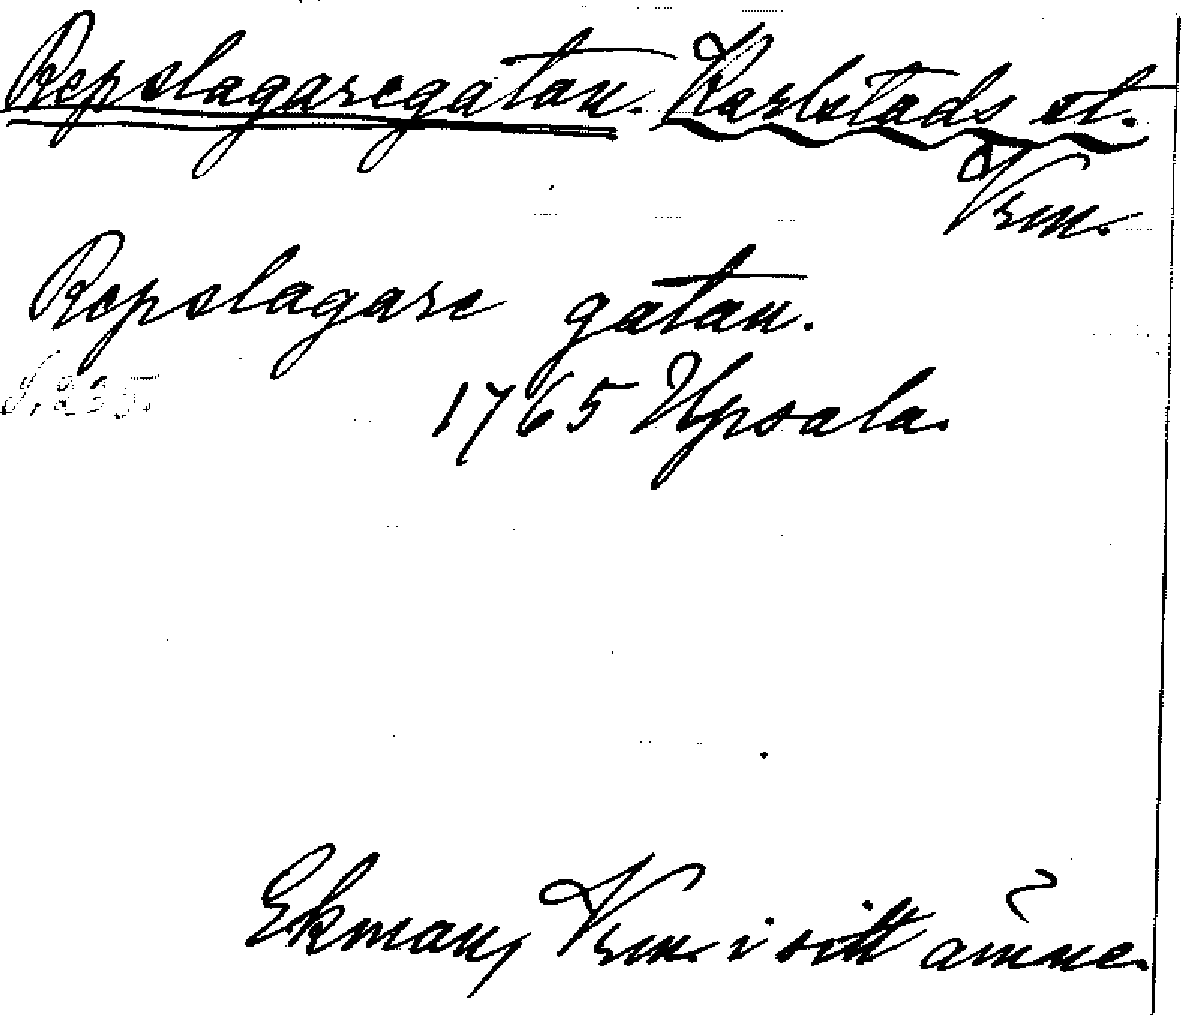 Repslagaregatan. Karlstads st.
Vrm.
Repslagare gatan.
S. 235.
1765 Upsala.
Ekman, Vrm. i sitt ämne.